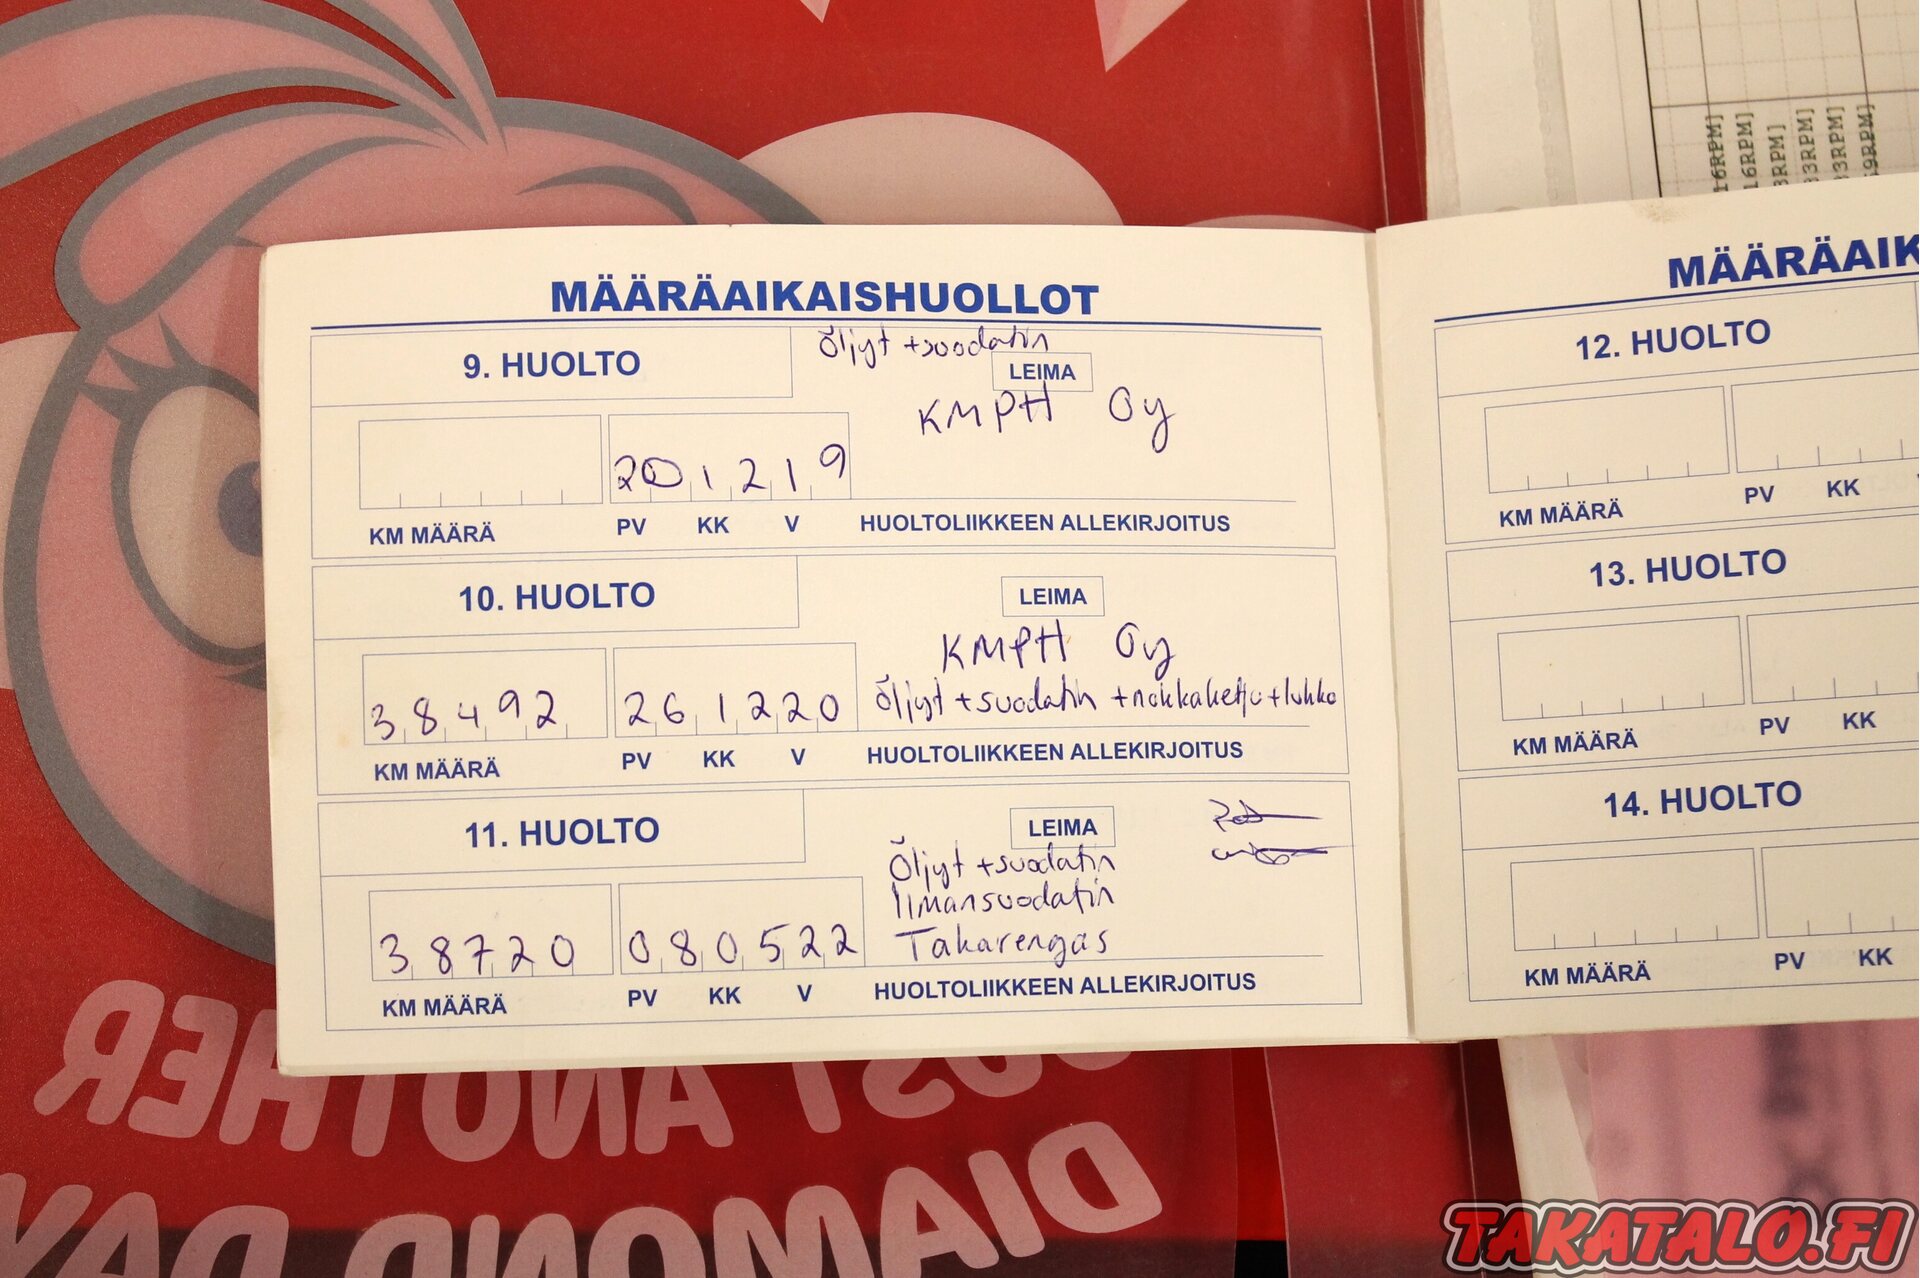 16RPM]
16RPM]
3RPM]
33RPM]
33RPM]
59RPM]
MÄÄRÄAIKAISHUOLLOT
9. HUOLTO
Öljyt +suodatin
LEIMA
KMPH Oy
201219
KM MÄÄRÄ PV KK V HUOLTOLIIKKEEN ALLEKIRJOITUS
10. HUOLTO
LEIMA
KMPH Oy
38492 261220 Öljyt +suodatin +nokkaketju+luhko
KM MÄÄRÄ PV KK V HUOLTOLIIKKEEN ALLEKIRJOITUS
11. HUOLTO
LEIMA
Öljyt +suodatin
Ilmansuodatin
38720 080522 Takarengas
KM MÄÄRÄ PV KK V HUOLTOLIIKKEEN ALLEKIRJOITUS
MÄÄRÄAIK
12. HUOLTO
KM MÄÄRÄ PV KK
13. HUOLTO
KM MÄÄRÄ PV KK
14. HUOLTO
KM MÄÄRÄ PV KK
JUST ANOTHER
DIAMOND DAY
TAKATALO.FI